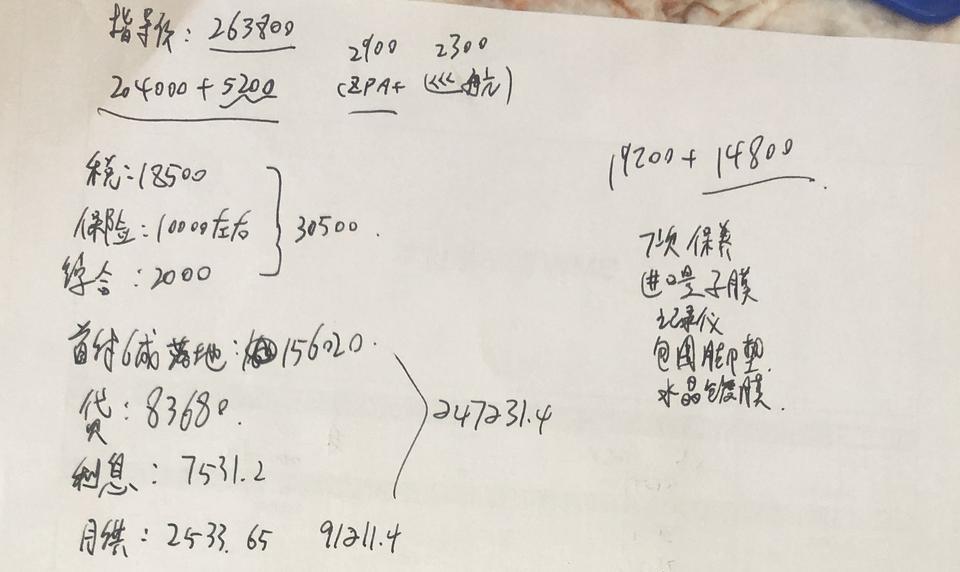 指导价：263800
2900 2300
204000+5200 (ZPA+ 巡航)
税：18500
保险：10000左右
综合：2000
30500.
首付6成落地：156020.
贷：83680.
利息：7531.2
247231.4
月供：2533.65 91211.4
19200+14800.
7次保养
进口量子膜
记录仪
包围脚垫.
水晶镀膜.